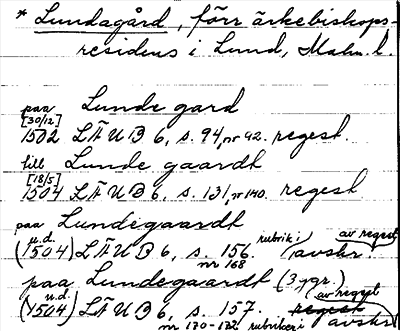 * Lundagård, förr ärkebiskops-
residens i Lund, Malm. l.
paa Lunde gard
[30/12]
1502 LÄUB 6, s. 94, nr 92. regest.
till Lunde gaardt
[18/5]
1504 LÄUB 6, s. 131, nr 140. regest
paa Lundegaardt
u.d. rubrik i av regest
(1504) LÄUB 6, s. 156. avskr.
nr 168
paa Lundegaardt (3 ggr.)
u.d. av regest
(1504) LÄUB 6, s. 157.
nr 170-172 rubriker i avskr.